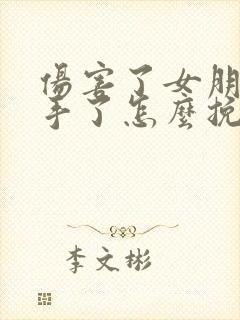 傷害了女朋
手了怎麼挽
李文彬